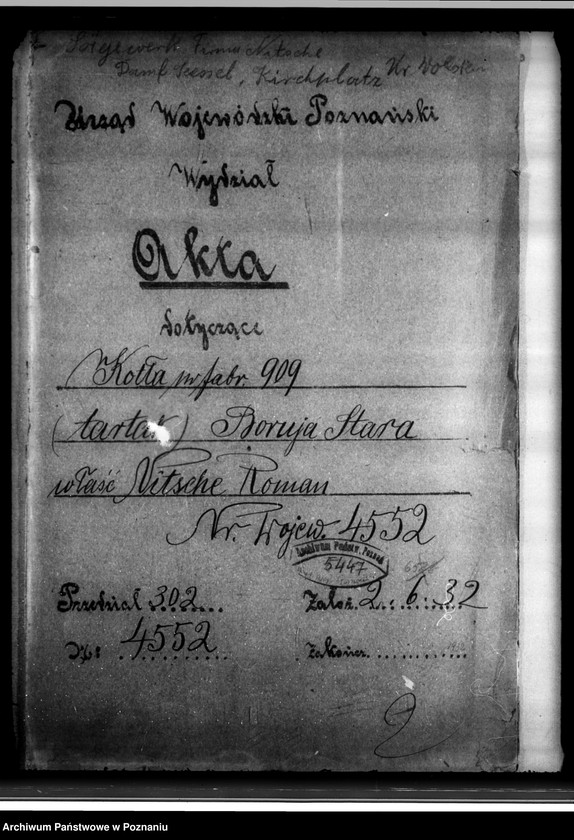 Sägewerk Firma Nitsche
Dampf Kessel, Kirchplatz Kr. Wollstein
Urząd Wojewódzki Poznański
Wydział
Akta
dotyczące
Kotła nr fabr. 909
(tartak) Boruja Stara
właść Nitsche Roman
Nr. Wojew. 4552
Archiwum Państw. Poznań
5447
Przedział 302
Założ. 2. 6. 32
4552
Zakończ.
2
Archiwum Państwowe w Poznaniu